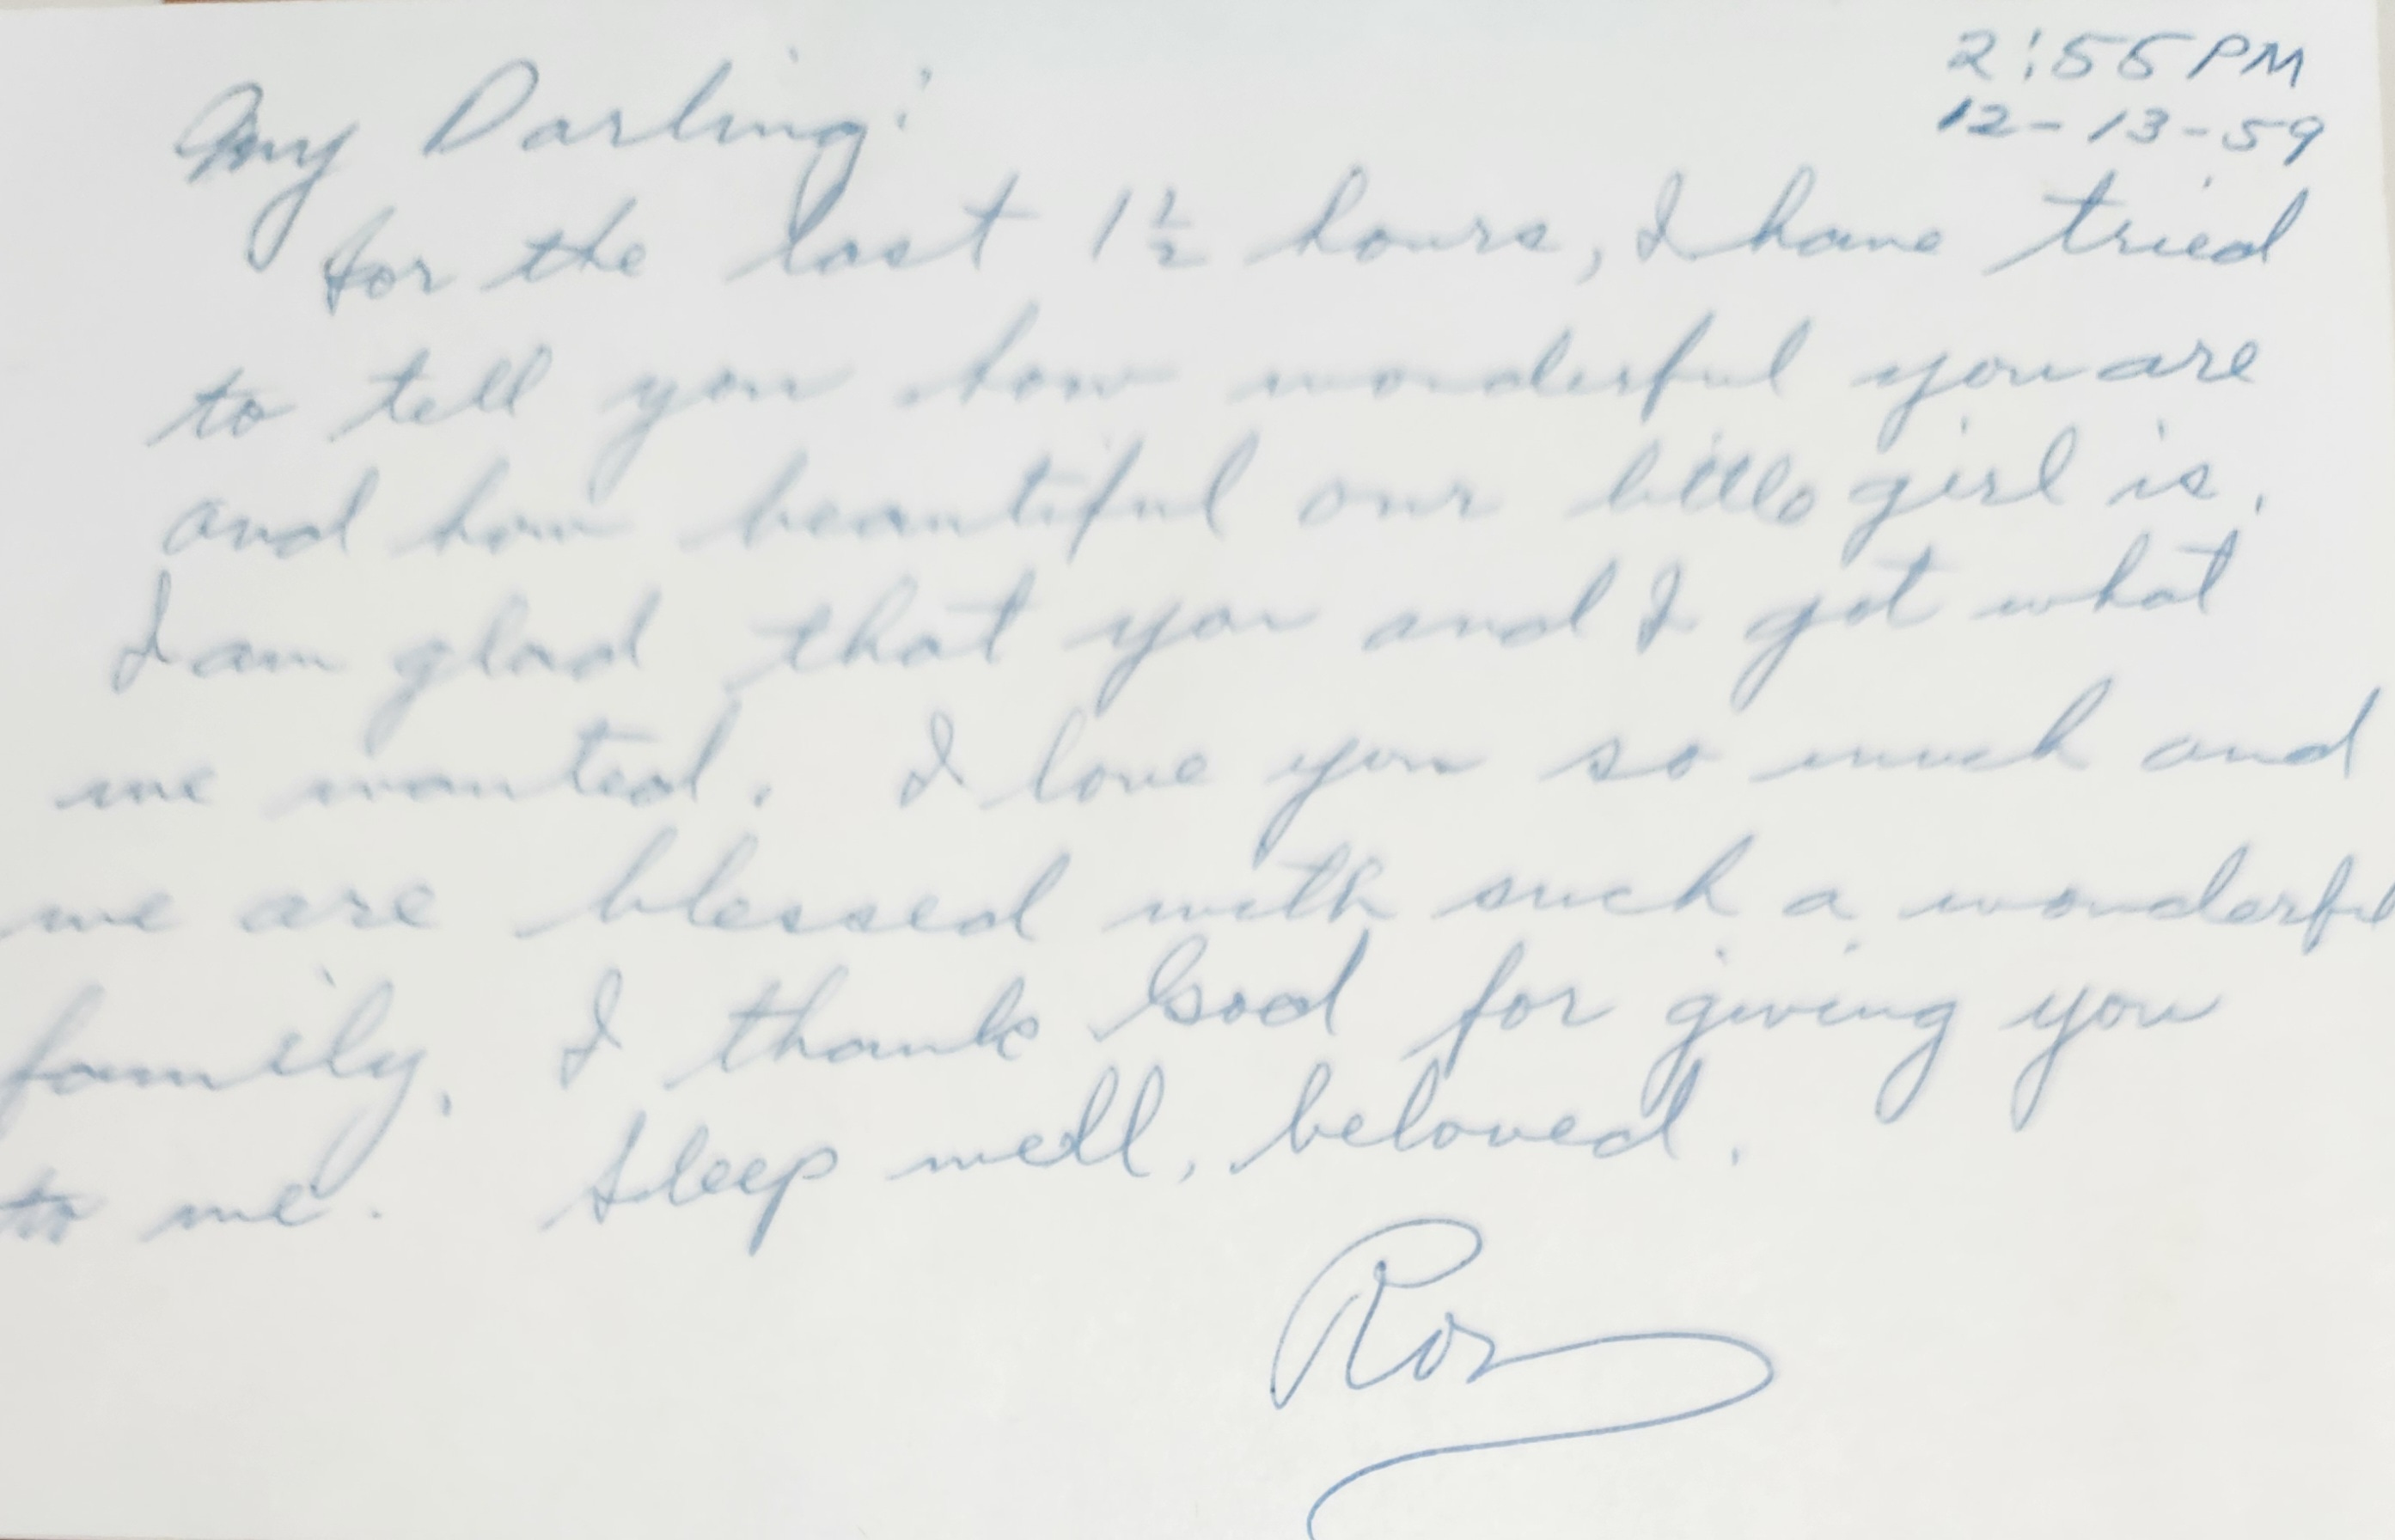 2:55 PM
12-13-59
My Darling:
for the last 1½ hours, I have tried
to tell you how wonderful you are
and how beautiful our little girl is.
I am glad that you and I got what
we wanted. I love you so much and
we are blessed with such a wonderful
family. I thank God for giving you
to me. Sleep well, beloved.